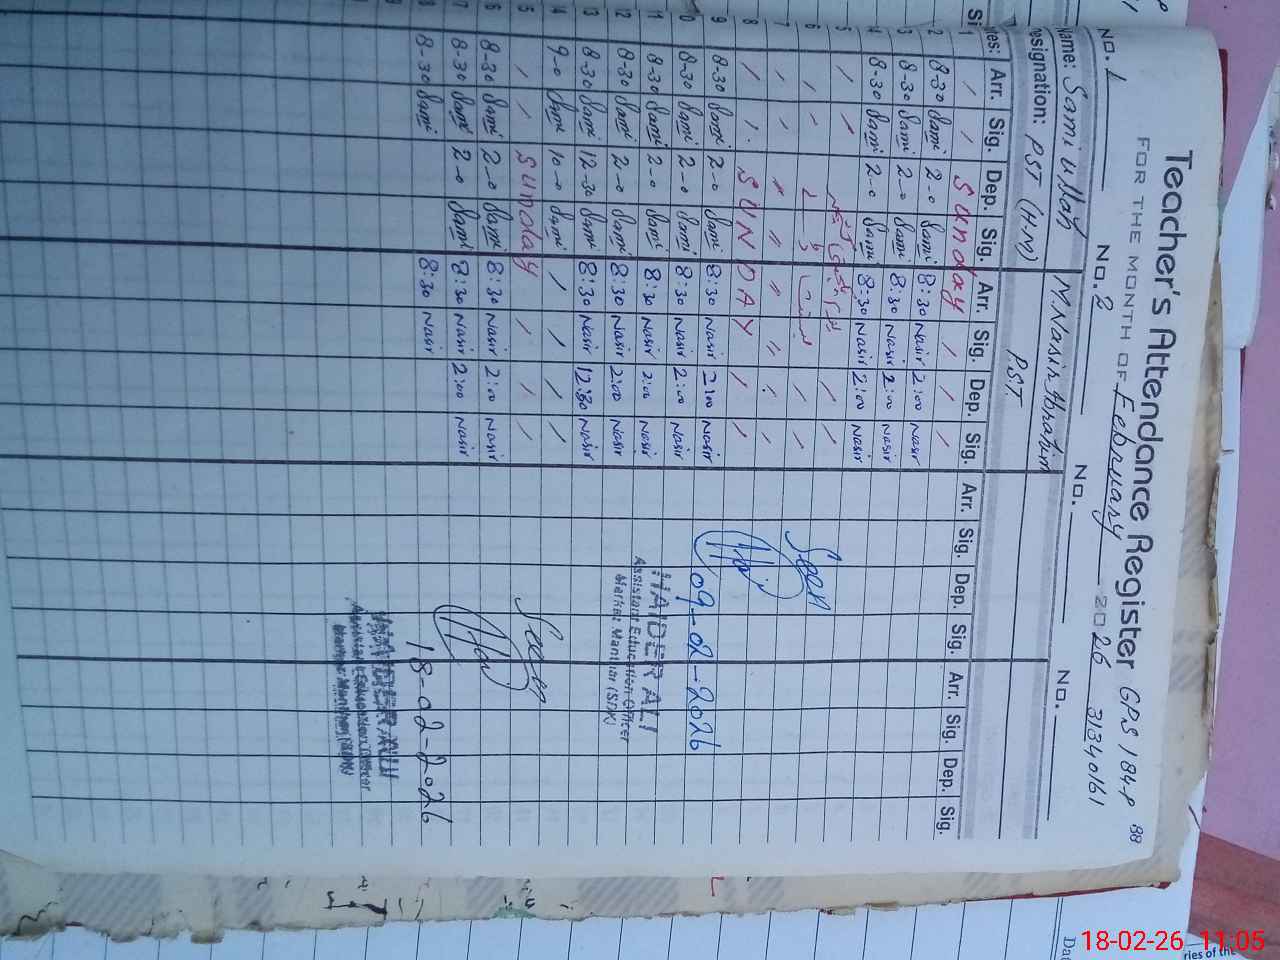 Teacher's Attendance Register GPS 184-P 88
FOR THE MONTH OF February 2026 31340161
NO. 1 No. 2 No. No.
Name: Sami Ullah M. Nasir Ibrahim
Designation: PST (H-M) P.S.T.
Dates: Arr. Sig. Dep. Sig. Arr. Sig. Dep. Sig. Arr. Sig. Dep. Sig. Arr. Sig. Dep. Sig.
1 / / Sunday / / /
2 8-30 Sami 2-0 Sami 8:30 Nasir 2:00 Nasir
3 8-30 Sami 2-0 Sami 8:30 Nasir 2:00 Nasir
4 8-30 Sami 2-0 Sami 8:30 Nasir 2:00 Nasir
5 / / / /
6 / / / /
7 / / " " " " : /
8 / / SUNDAY / /
9 8-30 Sami 2-0 Sami 8:30 Nasir 2:00 Nasir
10 8-30 Sami 2-0 Sami 8:30 Nasir 2:00 Nasir
11 8-30 Sami 2-0 Sami 8:30 Nasir 2:00 Nasir
12 8-30 Sami 2-0 Sami 8:30 Nasir 2:00 Nasir
13 8-30 Sami 12-30 Sami 8:30 Nasir 12:30 Nasir
14 9-0 Sami 10-0 Sami / / / /
15 / / Sunday / / /
16 8-30 Sami 2-0 Sami 8:30 Nasir 2:00 Nasir
17 8-30 Sami 2-0 Sami 8:30 Nasir 2:00 Nasir
18 8-30 Sami 8:30 Nasir
Seen
09-02-2026
HAIDER ALI
Assistant Education Officer
Markaz Manthar (SDK)
Seen
18-02-2026
HAIDER ALI
Assistant Education Officer
18-02-26 11:05
ries of the